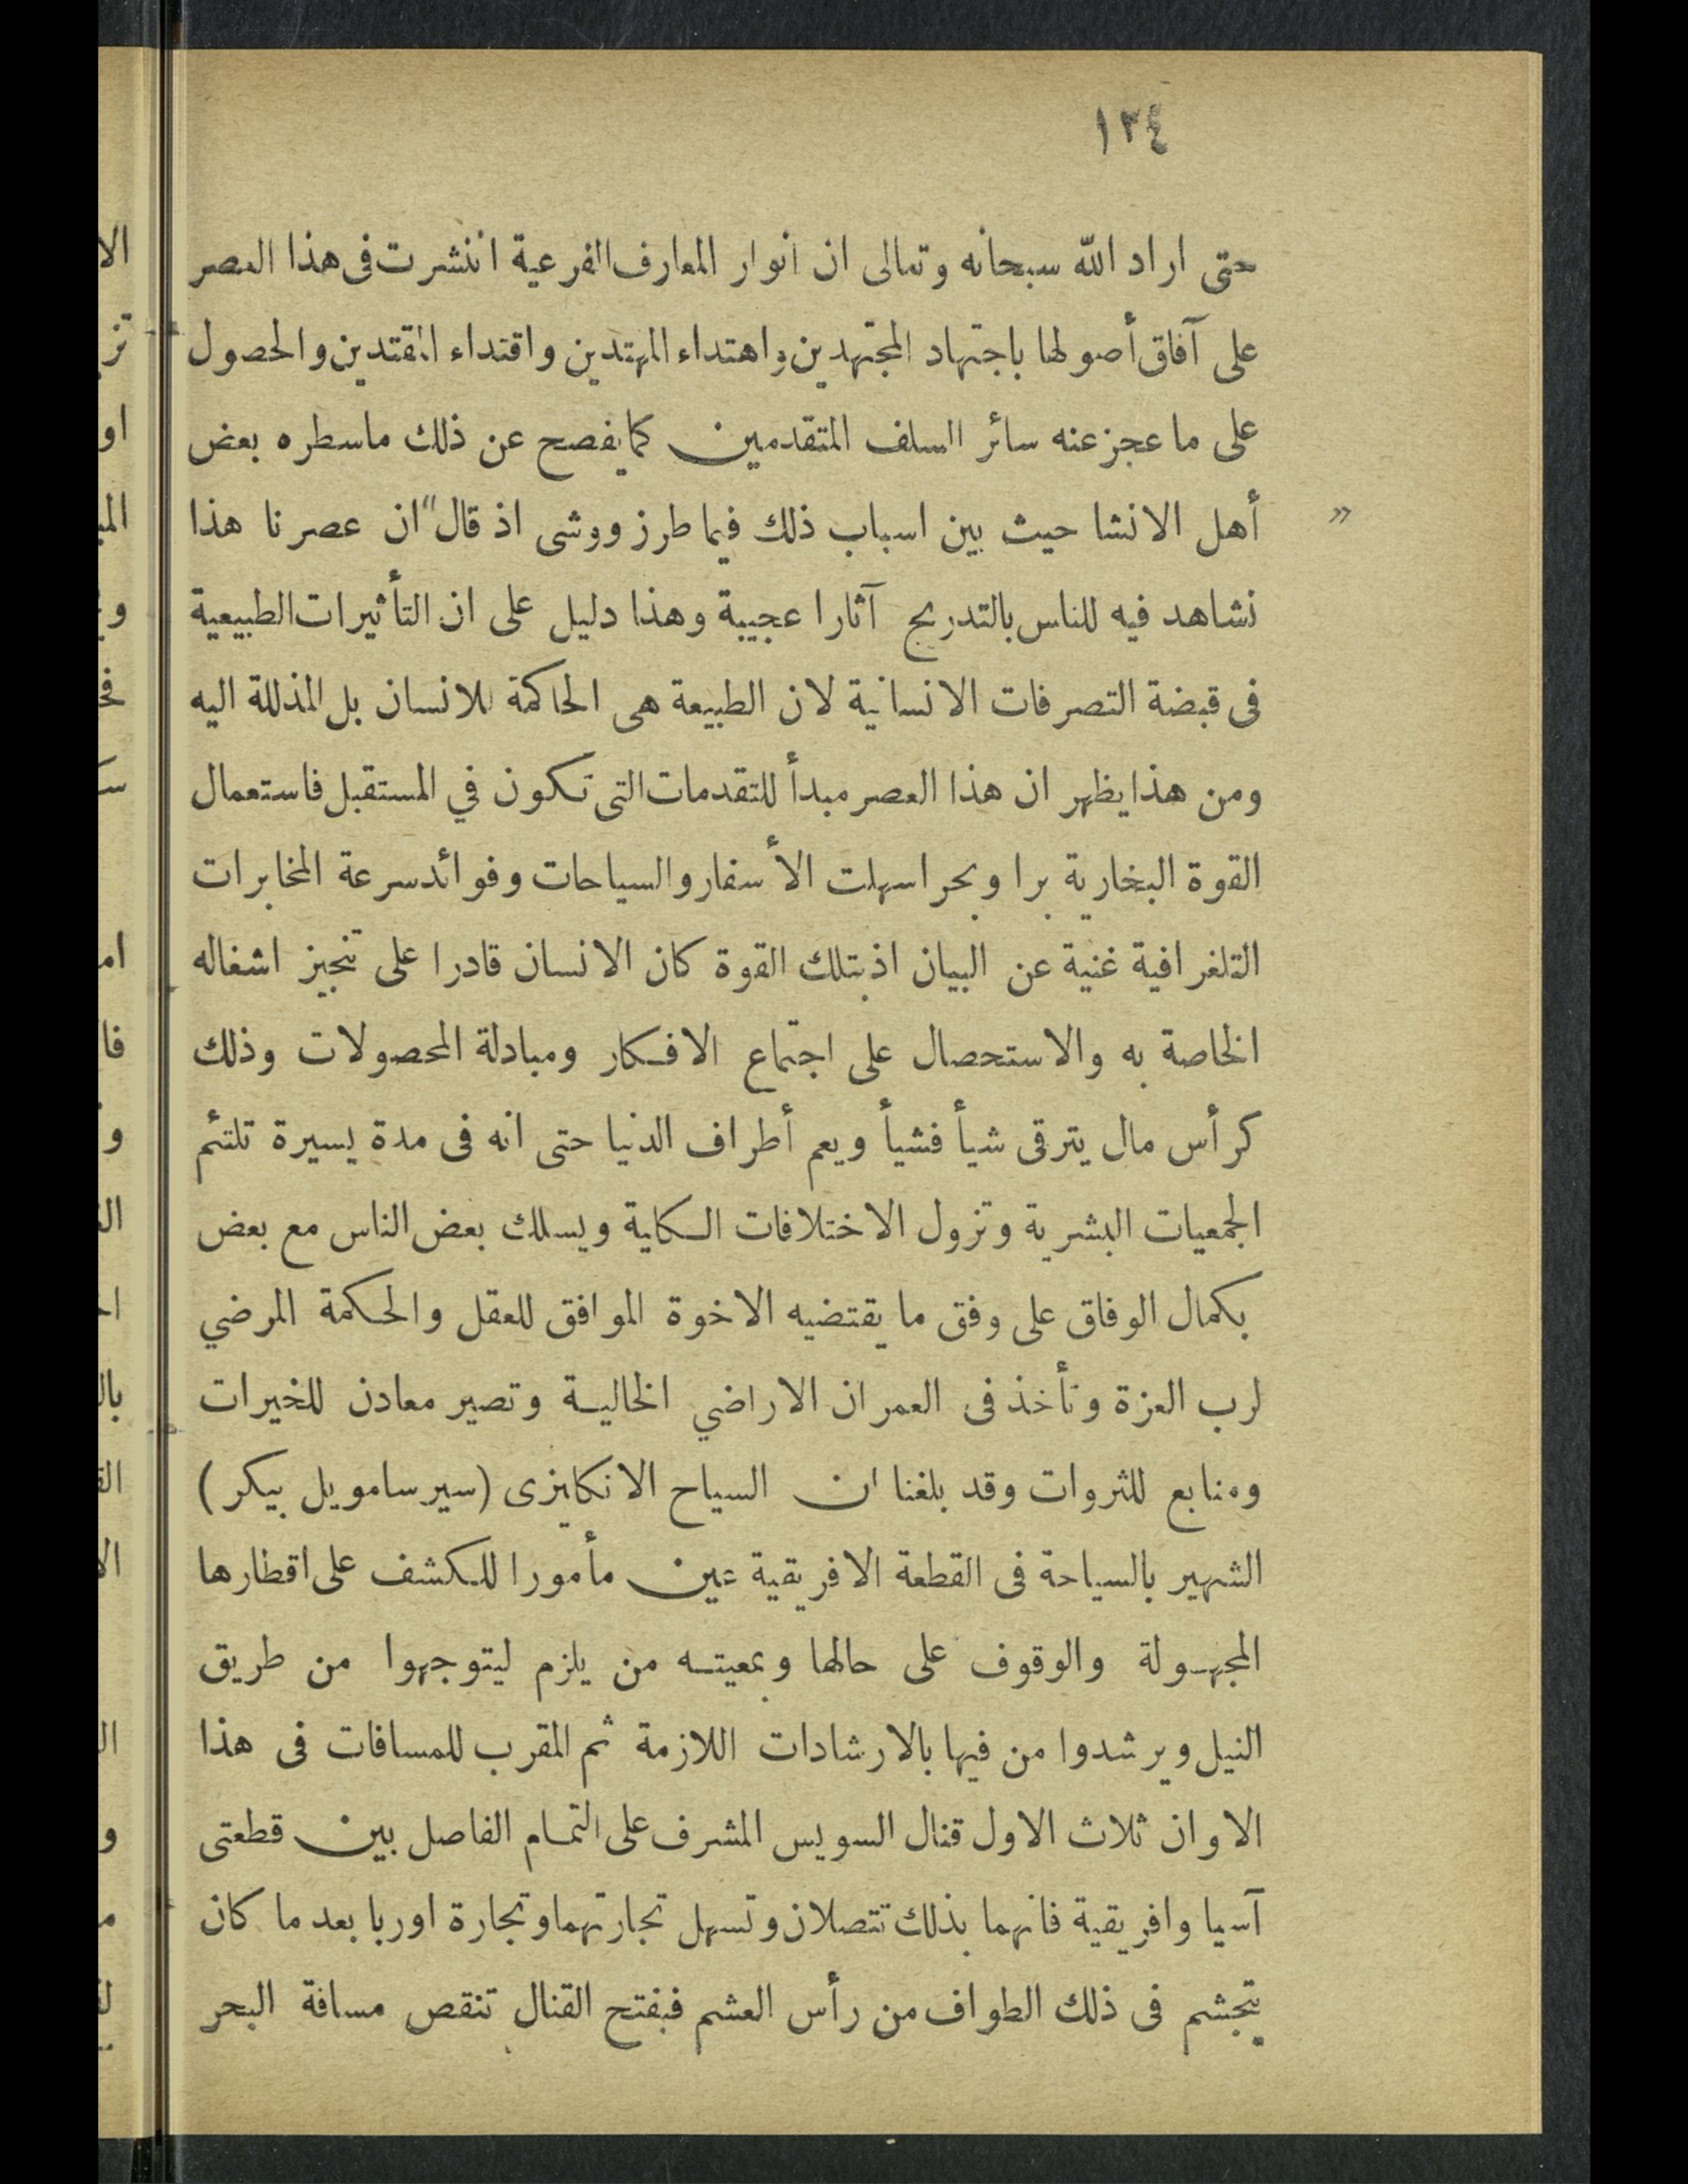 ١٢٤
حتى اراد الله سبحانه وتعالى ان انوار المعارف الفرعية انتشرت فى هذا العصر
على آفاق أصولها باجتهاد المجتهدين واهتداء المهتدين واقتداء المقتدين والحصول
على ما عجز عنه سائر السلف المتقدمين كما يفصح عن ذلك ماسطره بعض
أهل الانشا حيث بين اسباب ذلك فيما طرز ووشى اذ قال "ان عصرنا هذا "
نشاهد فيه للناس بالتدريج آثارا عجيبة وهذا دليل على ان التأثيرات الطبيعية
فى قبضة التصرفات الانسانية لان الطبيعة هى الحاكمة للانسان بل المذللة اليه
ومن هذا يظهر ان هذا العصر مبدأ للتقدمات التى تكون في المستقبل فاستعمال
القوة البخارية برا وبحرا سهلت الأسفار والسياحات وفوائد سرعة المخابرات
التلغرافية غنية عن البيان اذ بتلك القوة كان الانسان قادرا على تنجيز اشغاله
الخاصة به والاستحصال على اجتماع الافكار ومبادلة المحصولات وذلك
كرأس مال يترقى شيأ فشيأ ويعم أطراف الدنيا حتى انه فى مدة يسيرة تلتئم
الجمعيات البشرية وتزول الاختلافات الكلية ويسلك بعض الناس مع بعض
بكمال الوفاق على وفق ما يقتضيه الاخوة الموافق للعقل والحكمة المرضي
لرب العزة وتأخذ فى العمران الاراضي الخالية وتصير معادن للخيرات
ومنابع للثروات وقد بلغنا ان السياح الانكليزى (سير سامويل بيكر)
الشهير بالسياحة فى القطعة الافريقية عين مأمورا للكشف على اقطارها
المجهولة والوقوف على حالها وبمعيته من يلزم ليتوجهوا من طريق
النيل ويرشدوا من فيها بالارشادات اللازمة ثم المقرب للمسافات فى هذا
الاوان ثلاث الاول قنال السويس المشرف على التمام الفاصل بين قطعتى
آسيا وافريقية فانهما بذلك تتصلان وتسهل تجارتهما وتجارة اوربا بعد ما كان
يتجشم فى ذلك الطواف من رأس العشم فبفتح القنال تنقص مسافة البحر